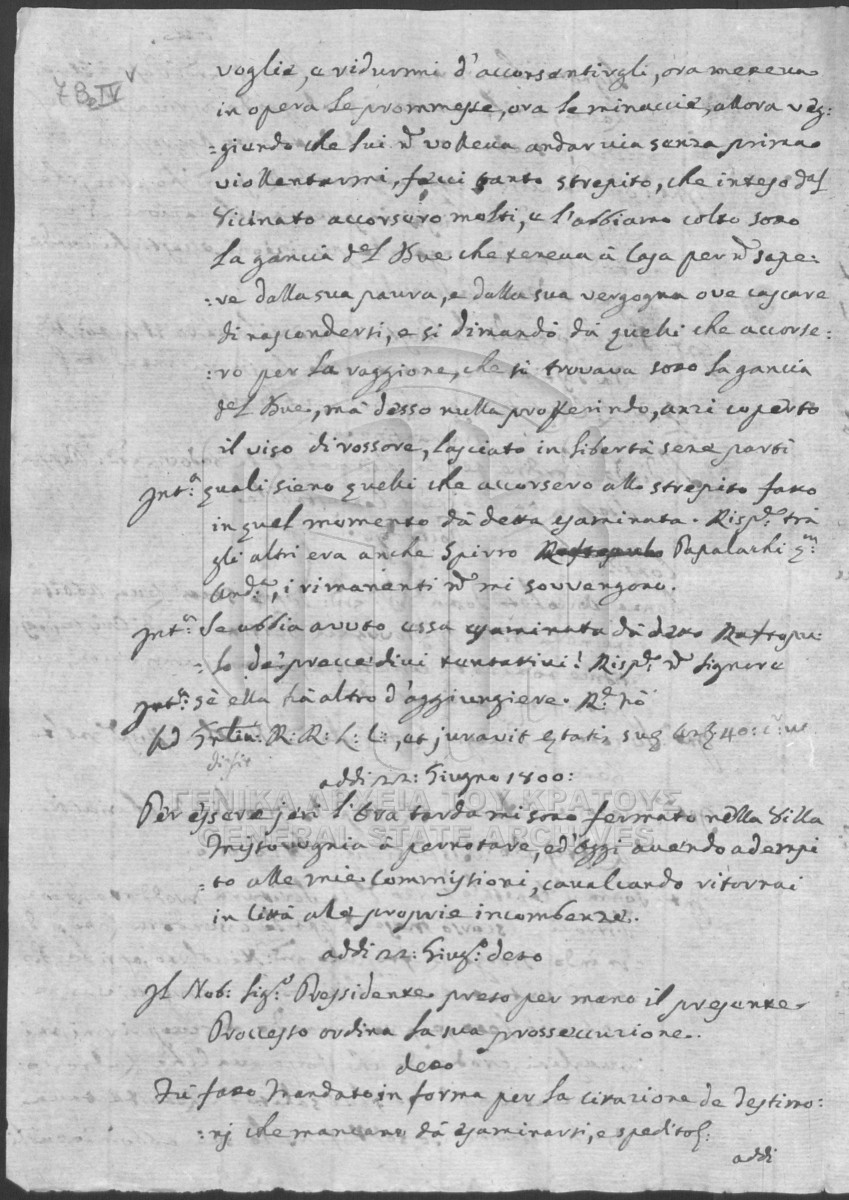 78 IV v
voglie, e ridurmi d'acconsentirgli, ora meteva
in opera le prommesse, ora le minaccie, allora veg:
=giendo che lui nō volleva andar via senza prima
viollentarmi, feci tanto strepito, che inteso dal
Vicinato accorsero molti, e l'abbiamo colto soto
la gancia del Bue che teneva à Casa per nō sape:
:re dalla sua paura, e dalla sua vergogna ove cascare
di nascondersi, e si dimandò da quelli che accorse:
:ro per la raggione, che si trovava soto la gancia
del Bue, mà desso nulla profferindo, anzi coperto
il viso di rossore, lasciato in libertà sene partì
Intª quali sieno quelli che accorsero allo strepito fato
in quel momento dà detta esaminata. Rispe trà
gli altri era anche Spirro Papalachi qm
Andª, i rimanenti nō mi sovvengono.
Intª Se abbia avuto essa esaminata dà deto
lo de precedivi tentativi? Rispe nō Signore
Intª sè ella hà altro d'aggiungiere. Re nò
R: R: L: L:, et juravit etatis sue 40: c:
addì 22: Giugno 1800:
Per essere jeri l'Ora tarda mi sono fermato nella Villa
à pernotare, ed'Oggi avendo adempi
=to alle mie Commissioni, cavalcando ritornai
in Cità alle proprie incombenze.
addì 22: Giugº deto
Il Nob: Sigr Pressidente preso per mano il presente
Processo ordina la sua prossecuzione.
deto
Fù fato Mandato in forma per la citazione de Testimo:
:nj che mancano dà esaminarsi, e spedito
addì
ΓΕΝΙΚΑ ΑΡΧΕΙΑ ΤΟΥ ΚΡΑΤΟΥΣ
GENERAL STATE ARCHIVES